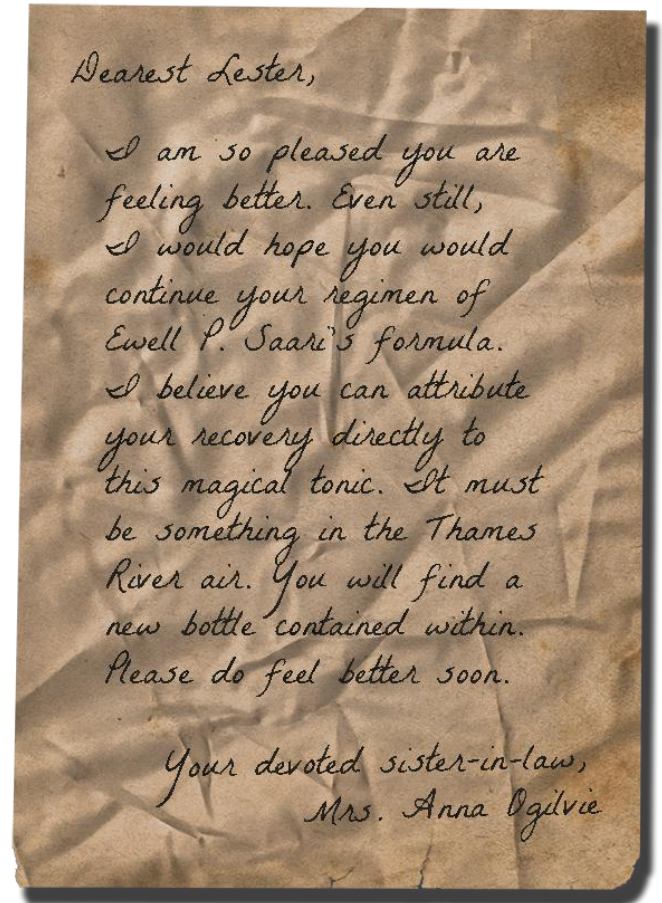 Dearest Lester,
I am so pleased you are
feeling better. Even still,
I would hope you would
continue your regimen of
Ewell P. Saari's formula.
I believe you can attribute
your recovery directly to
this magical tonic. It must
be something in the Thames
River air. You will find a
new bottle contained within.
Please do feel better soon.
Your devoted sister-in-law,
Mrs. Anna Ogilvie